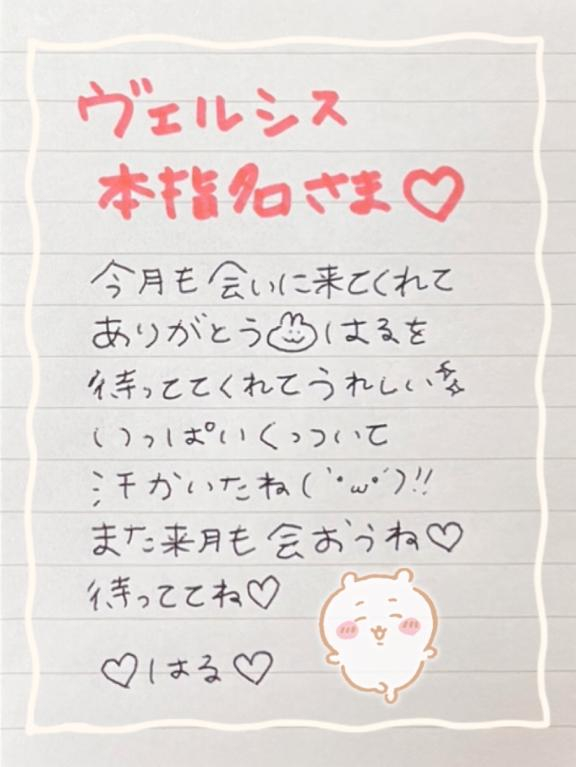 ヴェルシス
本指名さま♡
今月も会いに来てくれて
ありがとう はるを
待っててくれてうれしい
いっぱいくっついて
汗かいたね(´•ω•`)!!
また来月も会おうね♡
待っててね♡
♡はる♡